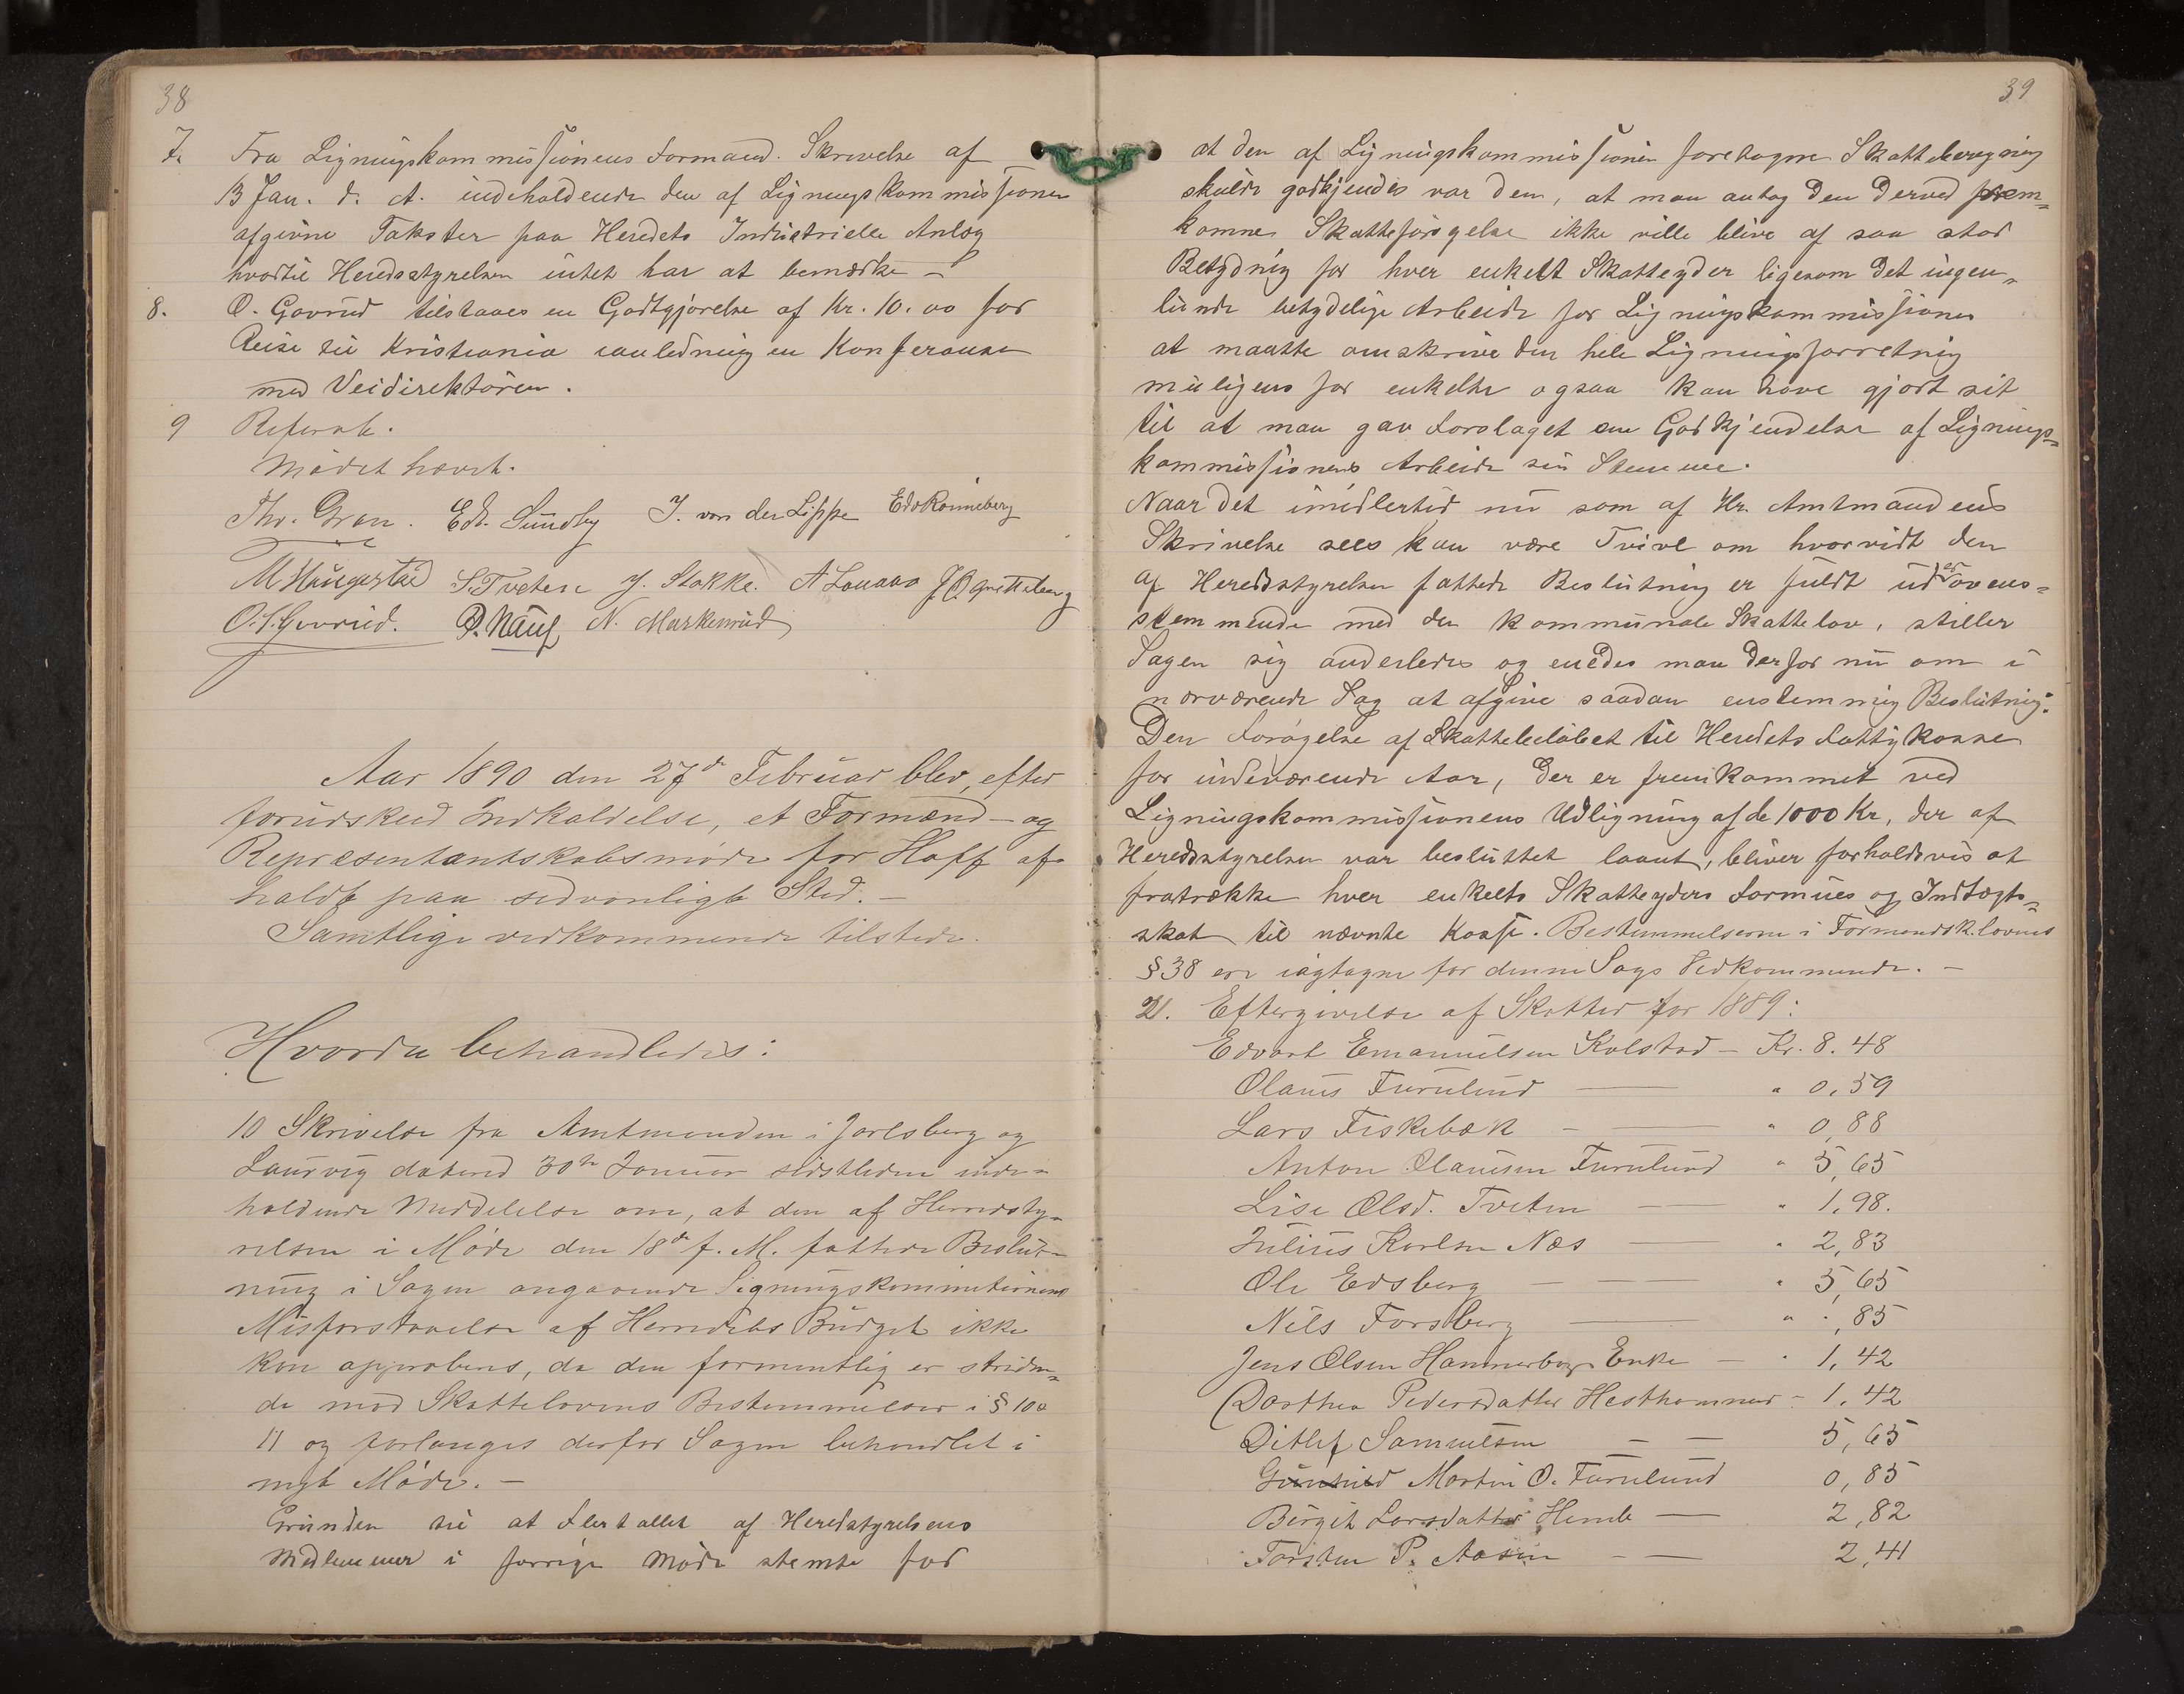 38
7. Fra Ligningskommissionens Formand. Skrivelse af
13 Jan. d. A. indeholdende den af Ligningskommissionen
afgivne Takster paa Heredets Industrielle Anlæg
hvortil Heredsstyrelsen intet har at bemærke –
8. O. Gavrud tilstaaes en Godtgjørelse af Kr. 10.00 for
Reise til Kristiania ianledning en Konferanse
med Veidirektøren.
9 Referat.
Mødet hævet.
Thr. Gran. Edv. Sundby J. von der Lippe Edv Rønneberg
M Haugestad S. Tveten J. Stokke. A Lanaao
O. S. Gavrud. P. Nauf N. Markerud
Aar 1890 den 27de Februar blev, efter
forudskeed Indkaldelse, et Formænd- og
Repræsentantskabsmøde for Hoff af-
holdt paa sedvanligt Sted. –
Samtlige vedkommende tilstede.
Hvorda behandledes:
10 Skrivelse fra Amtmanden i Jarlsberg og
Laurvig dateret 30te Januar sidstleden inde-
holdende Meddelelse om, at den af Herredsty-
relsen i Møde den 18de f. M. fattede Beslut-
ning i Sagen angaaende Ligningskommissionens
Misforstaaelse af Herredets Budget ikke
kan approberes, da den formentlig er striden-
de mod Skattelovens Bestemmelser i § 10 o
11 og forlanges derfor Sagen behandlet i
nyt Møde. –
Grunden til at Flertallet af Heredstyrelsens
Medlemmer i forrige Møde stemte for
39
at den af Ligningskommissionen foretagne Skatteberegning
skulde godkjendes var den, at man antog den derved frem-
komne Skatteforøgelse ikke ville blive af saa stor
Betydning for hver enkelt Skatteyder ligesom det ingen-
lunde betydelige Arbeide for Ligningskommissionen
at maatte omskrive den hele Ligningsforretning
muligens for enkelte ogsaa kan have gjort sit
til at man gav Forslaget om Godkjendelse af Lignings-
kommissionens Arbeide sin Stemme.
Naar det imidlertid nu som af Hr. Amtmandens
Skrivelse sees kan være Tvivl om hvorvidt den
af Heredsstyrelsen fattede Beslutning er fuldt ud overens-
stemmende med den kommunale Skattelov, stiller
Sagen sig anderledes og enedes man derfor nu om i
nærværende Sag at afgive saadan enstemmig Beslutning:
Den Forøgelse af Skattebeløbet til Heredets Fattigkasse
for indeværende Aar, der er fremkommet ved
Ligningskommissionens Udligning af de 1000 Kr, der af
Heredsstyrelsen var besluttet laant, bliver forholdsvis at
fratrække hver enkelts Skatteyders Formues og Indtægts-
skat til nævnte Kasse. Bestemmelserne i Formandsk.lovens
§ 38 ere iagtagne for denne Sags Vedkommende. –
21. Eftergivelse af Skatter for 1889:
Edvart Emanuelsen Kolstad – Kr. 8.48
Olaus Furulund " 0,59
Lars Fiskebæk – " 0,88
Anton Olausen Furulund " 5,65
Lise Olsd. Tveten " 1,98.
Julius Karlsen Næs " 2,83
Ole Edsberg " 5,65
Nils Forsberg " . ,85
Jens Olsen Hammerberg Enke – " 1,42
Dorthea Pedersdatter Hesthammer – 1,42
Ditlef Samuelsen 5,65
Gunhild Martin O. Furulund 0,85
Birgit Larsdatter Hemb 2,82
Torsten P. Aasen 2,41